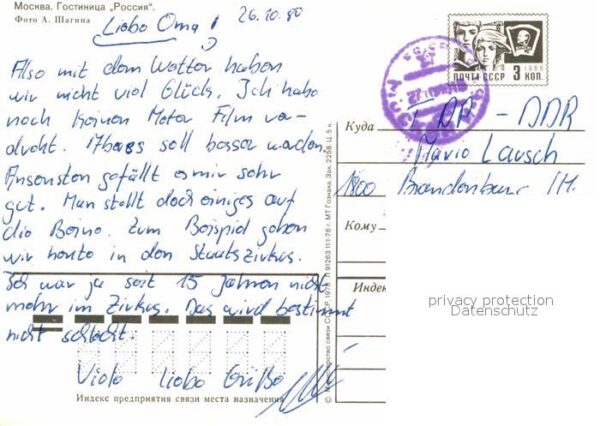 Москва. Гостиница „Россия".
Фото А. Шагина
26.10.80
Liebe Oma!
Also mit dem Wetter haben
wir nicht viel Glück. Ich habe
noch keinen Meter Film ver-
dreht. Aber es soll besser werden.
Ansonsten gefällt es mir sehr
gut. Man stellt doch einiges auf
die Beine. Zum Beispiel gehen
wir heute in den Staatszirkus.
Ich war ja seit 15 Jahren nicht
mehr im Zirkus. Das wird bestimmt
nicht schlecht.
Viele liebe Grüße
Индекс предприятия связи места назначения
ПОЧТА СССР 3 КОП.
1966
Куда
DDR
Lausch
1800 Brandenburg
Кому
Индекс
privacy protection
Datenschutz